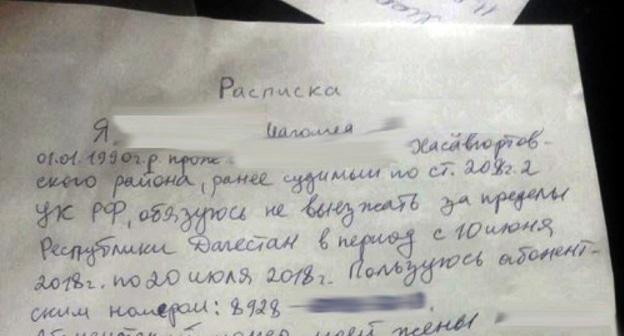 Расписка
Я
Хасавюртов-
01.01.1990г.р. прож.
ского района, ранее судимый по ст. 208 ч. 2
УК РФ, обязуюсь не выезжать за пределы
Республики Дагестан в период с 10 июня
2018г. по 20 июля 2018г. Пользуюсь абонент-
ским номером: 8928
моей жены